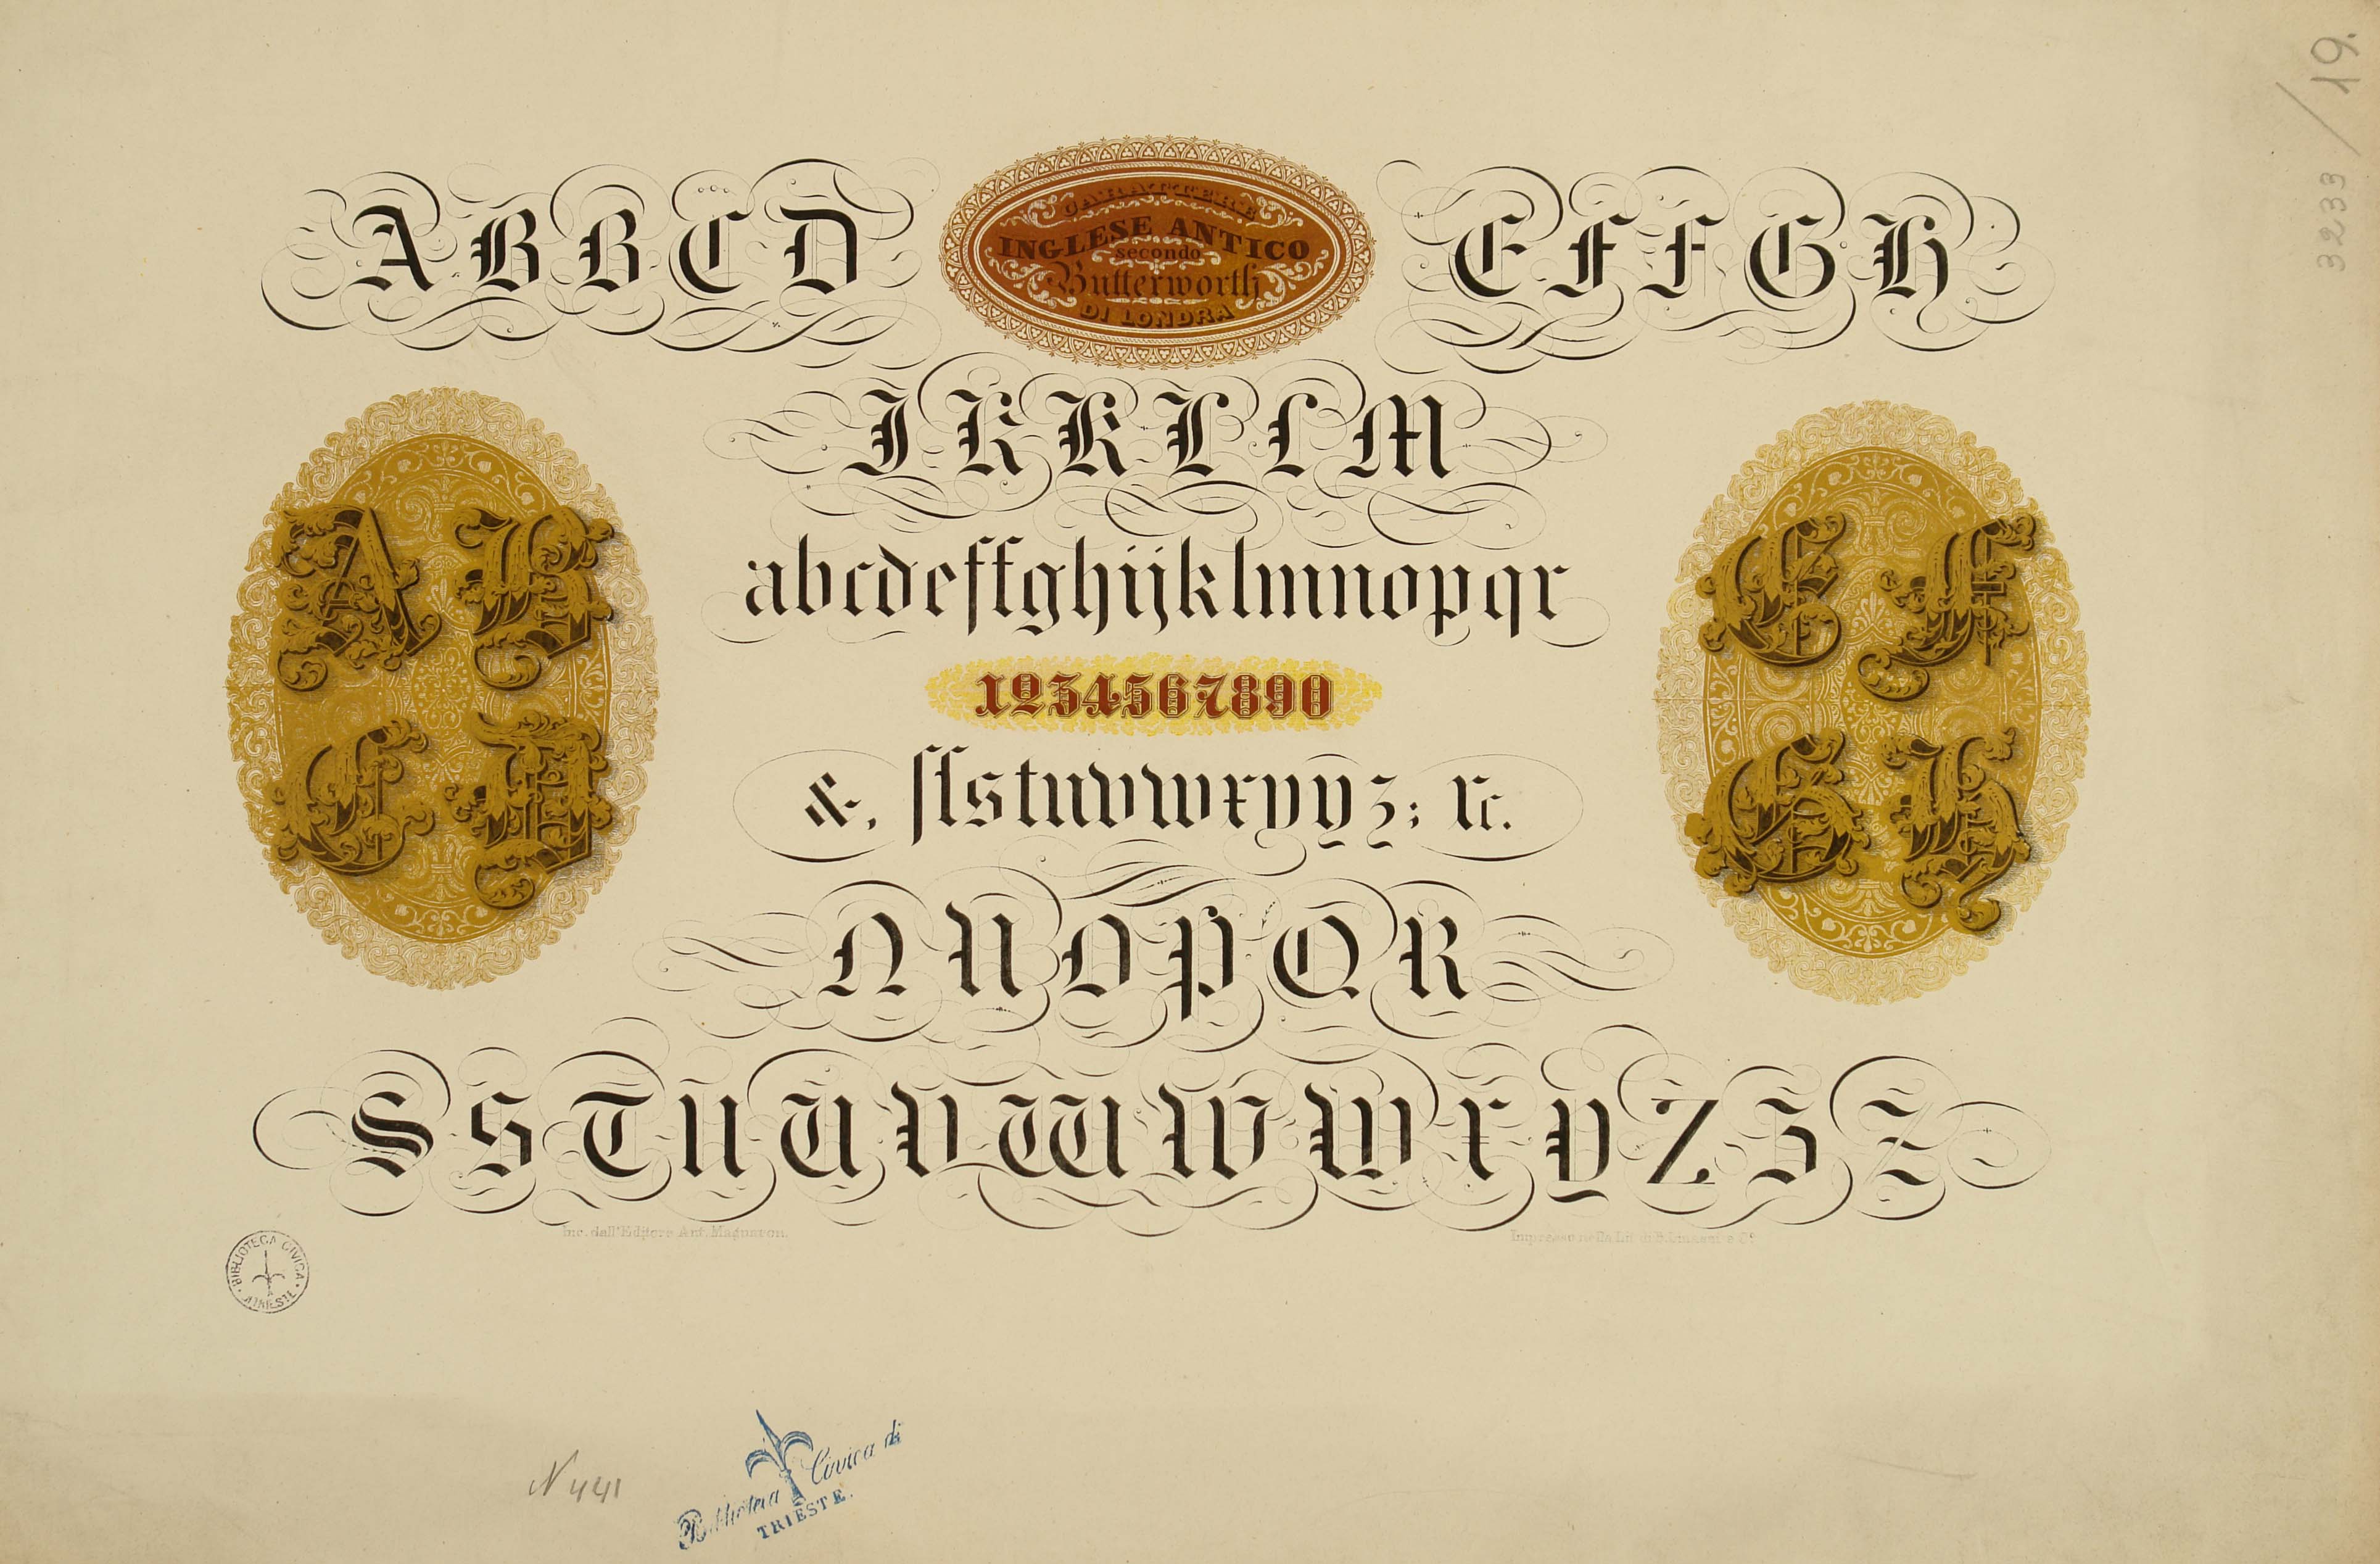 3233 / 19.
CARATTERE
INGLESE ANTICO
secondo
Butterworth
DI LONDRA
A B B C D
E F F G H
I K K L L M
A B
C D
E F
G H
abcdeffghijklmnopqr
1234567890
&, ſſstuvwxyyz; &c.
N N O P Q R
S S T U U V W W W X Y Z Z Z
Inc. dall'Editore Ant. Magnaron.
Impresso nella Lit. di
BIBLIOTECA CIVICA
TRIESTE
N 441
Biblioteca Civica di
TRIESTE.